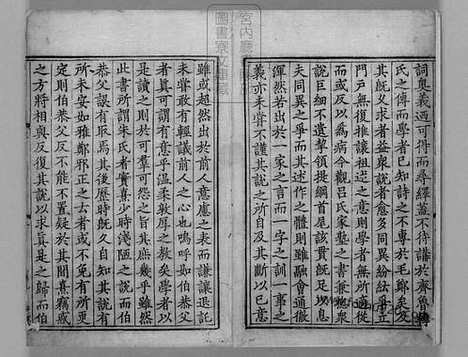 詞奧義迺可得而尋繹蓋不待講於齊魯韓
氏之傳而學者已知詩之不專於毛鄭矣及
其既久求者益衆說者愈多同異紛紜爭立
門戶無復推讓祖述之意則學者無所適從
而或反以爲病今觀呂氏家塾之書兼總衆
說巨細不遺挈領提綱首尾該貫既足以息
夫同異之爭而其述作之體則雖融會通徹
渾然若出於一家之言而一字之訓一事之
義亦未嘗不謹其說之所自及其斷以己意
雖或超然出於前人意慮之表而謙讓退託
未嘗敢有輕議前人之心也嗚呼如伯恭父
者眞可謂有意乎溫柔敦厚之教矣學者以
是讀之則於可羣可怨之旨其庶幾乎雖然
此書所謂朱氏者實熹少時淺陋之說而伯
恭父誤有取焉其後歷時既久自知其說有
所未安如雅鄭邪正之云者或不免有所更
定則伯恭父反不能不置疑於其間熹竊惑
之方將相與反復其說以求眞是之歸而伯
宮内廳
圖書寮文庫藏